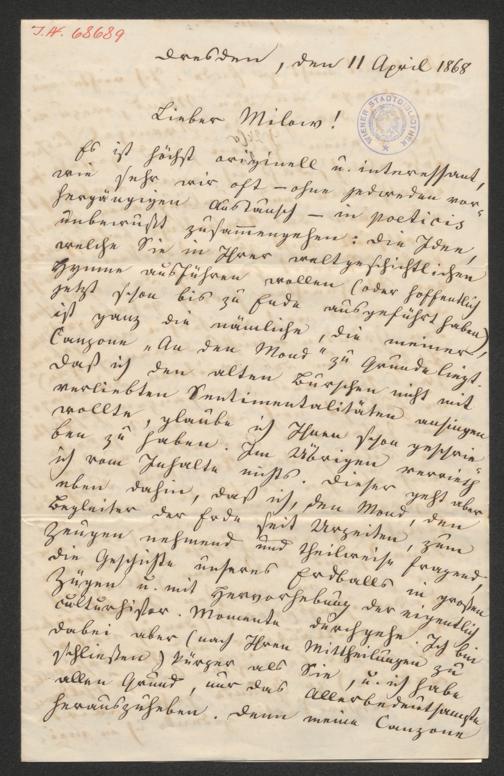 J.N. 68689
Dresden, den 11 April 1868
WIENER STADTBIBLIOTHEK
Lieber Milow!
Es ist höchst originell u. interessant,
wie sehr wir oft – ohne jedweden vor-
hergängigen Austausch – in poeticis
unbewußt zusammengehen: die Idee,
welche Sie in Ihrer weltgeschichtlichen
Hymne ausführen wollen (oder hoffentlich
jetzt schon bis zu Ende ausgeführt haben),
ist ganz die nämliche, die meiner
Canzone „An den Mond" zu Grunde liegt.
Daß ich den alten Burschen nicht mit
verliebten Sentimentalitäten ansingen
wollte, glaube ich Ihnen schon geschrie-
ben zu haben. Im Übrigen verrieth
ich vom Inhalte nichts. Dieser geht aber
eben dahin, daß ich, den Mond, den
Begleiter der Erde seit Urzeiten, zum
Zeugen nehmend und theilweise fragend,
die Geschichte unseres Erdballs in großen
Zügen u. mit Hervorhebung der eigentlich
culturhistor. Momente durchgehe. Ich bin
dabei aber (nach Ihren Mittheilungen zu
schließen) kürzer als Sie, u. ich habe
allen Grund, nur das Allerbedeutsamste
herauszuheben. Denn meine Canzone